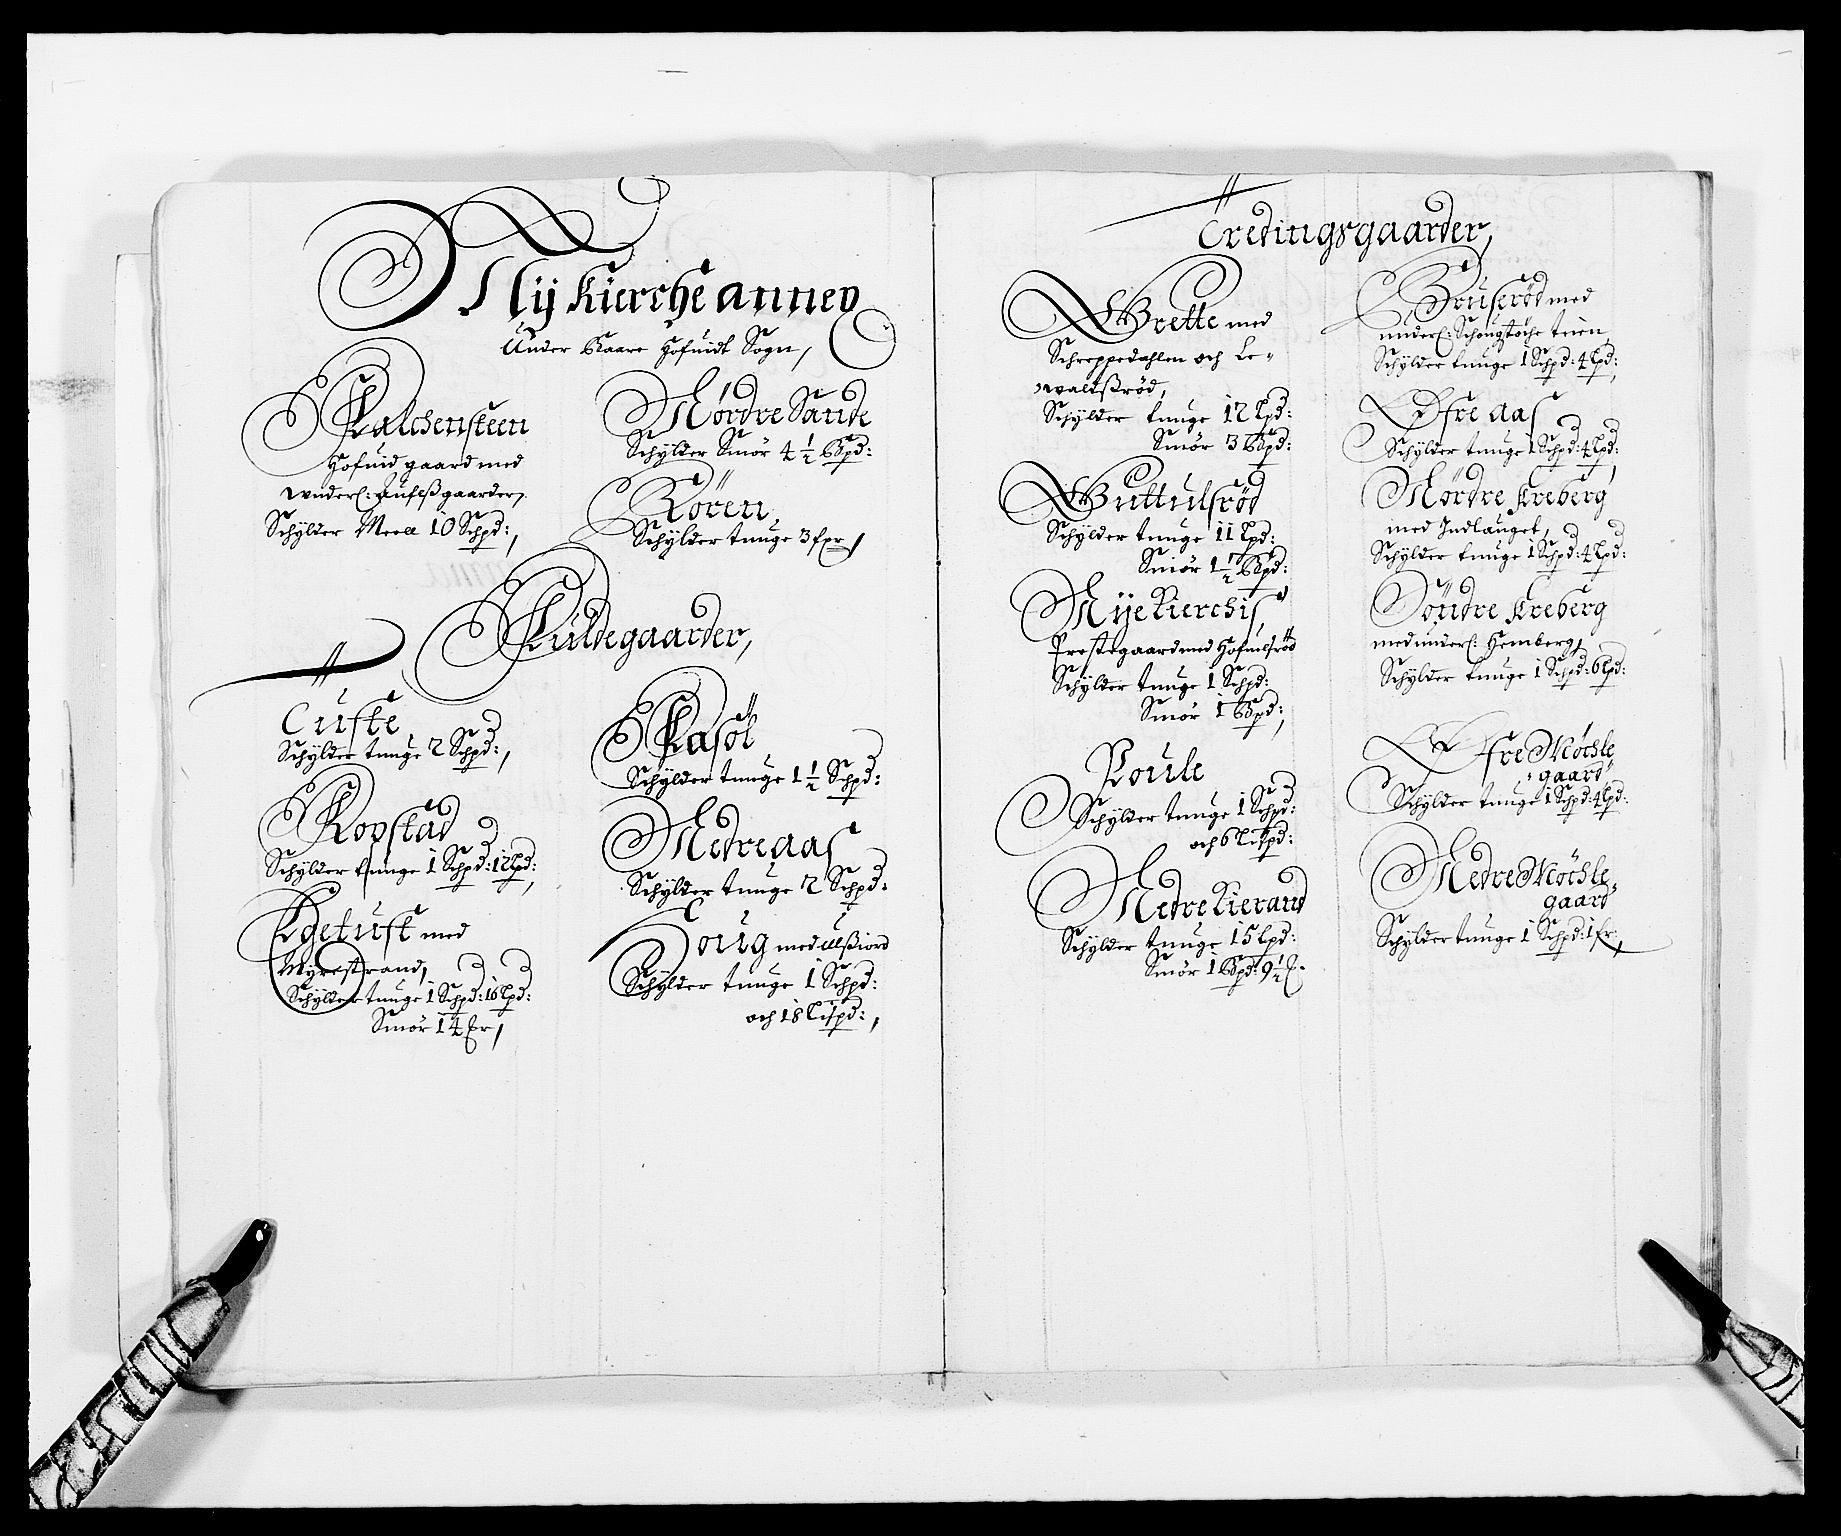 Nÿ Kierche annex
Under Baare Hofuidt Sogn,
Falchensteen
Hofuid gaard med
underl: Hufuß gaarder,
Schÿlder Meell 10 Schpd:,
Nørdre Sande
Schÿlder Smør 4 1/2 Bßpd:
Røren
Schÿlder tunge 3 fxr,
Fuldegaarder,
Tufte
Schÿlder tunge 2 Schpd:,
Kopstad
Schÿlder tunge 1 Schpd: 12 Lpd:,
Agetuft med
Myrestrand,
Schÿlder tunge 1 Schpd: 16 Lpd:
Smør 14 Mr,
Fasøl
Schÿlder tunge 1 1/2 Schpd:
Nedre aas
Schÿlder tunge 2 Schpd:
Houg med Ulßiord
Schÿlder tunge 1 Schpd:
och 18 Lispd:,
Tredingsgaarder,
Brette med
Schreppedahlen och Le-
waldßrød,
Schÿlder tunge 12 Lpd:
Smør 3 Bßpd:
Guttulsrød
Schÿlder tunge 11 Lpd:
Smør 1 1/2 Bßpd:
Nÿe Kierchis
Prestegaard med Hofuelsrød
Schÿlder tunge 1 Schpd:
Smør 1 Bßpd:,
Foule
Schÿlder tunge 1 Schpd:
och 6 Lispd:
Nedre Kierand
Schÿlder tunge 15 Lpd:
Smør 1 Bßpd: 9 1/2 M.
Bruserød med
underl: teien
Schÿlder tunge 1 Schpd: 4 Lpd:,
Øfre aas
Schÿlder tunge 1 Schpd: 4 Lpd:,
Nørdre Kreberg
med Indlauget,
Schÿlder tunge 1 Schpd: 4 Lpd:
Søndre Kreberg
med underl: Hemberg,
Schÿlder tunge 1 Schpd: 6 Lpd:
Øfre Møchle
gaard
Schÿlder tunge 1 Schpd: 4 Lpd:
Nedre Møchle
gaard
Schÿlder tunge 1 Schpd: 1 fr,